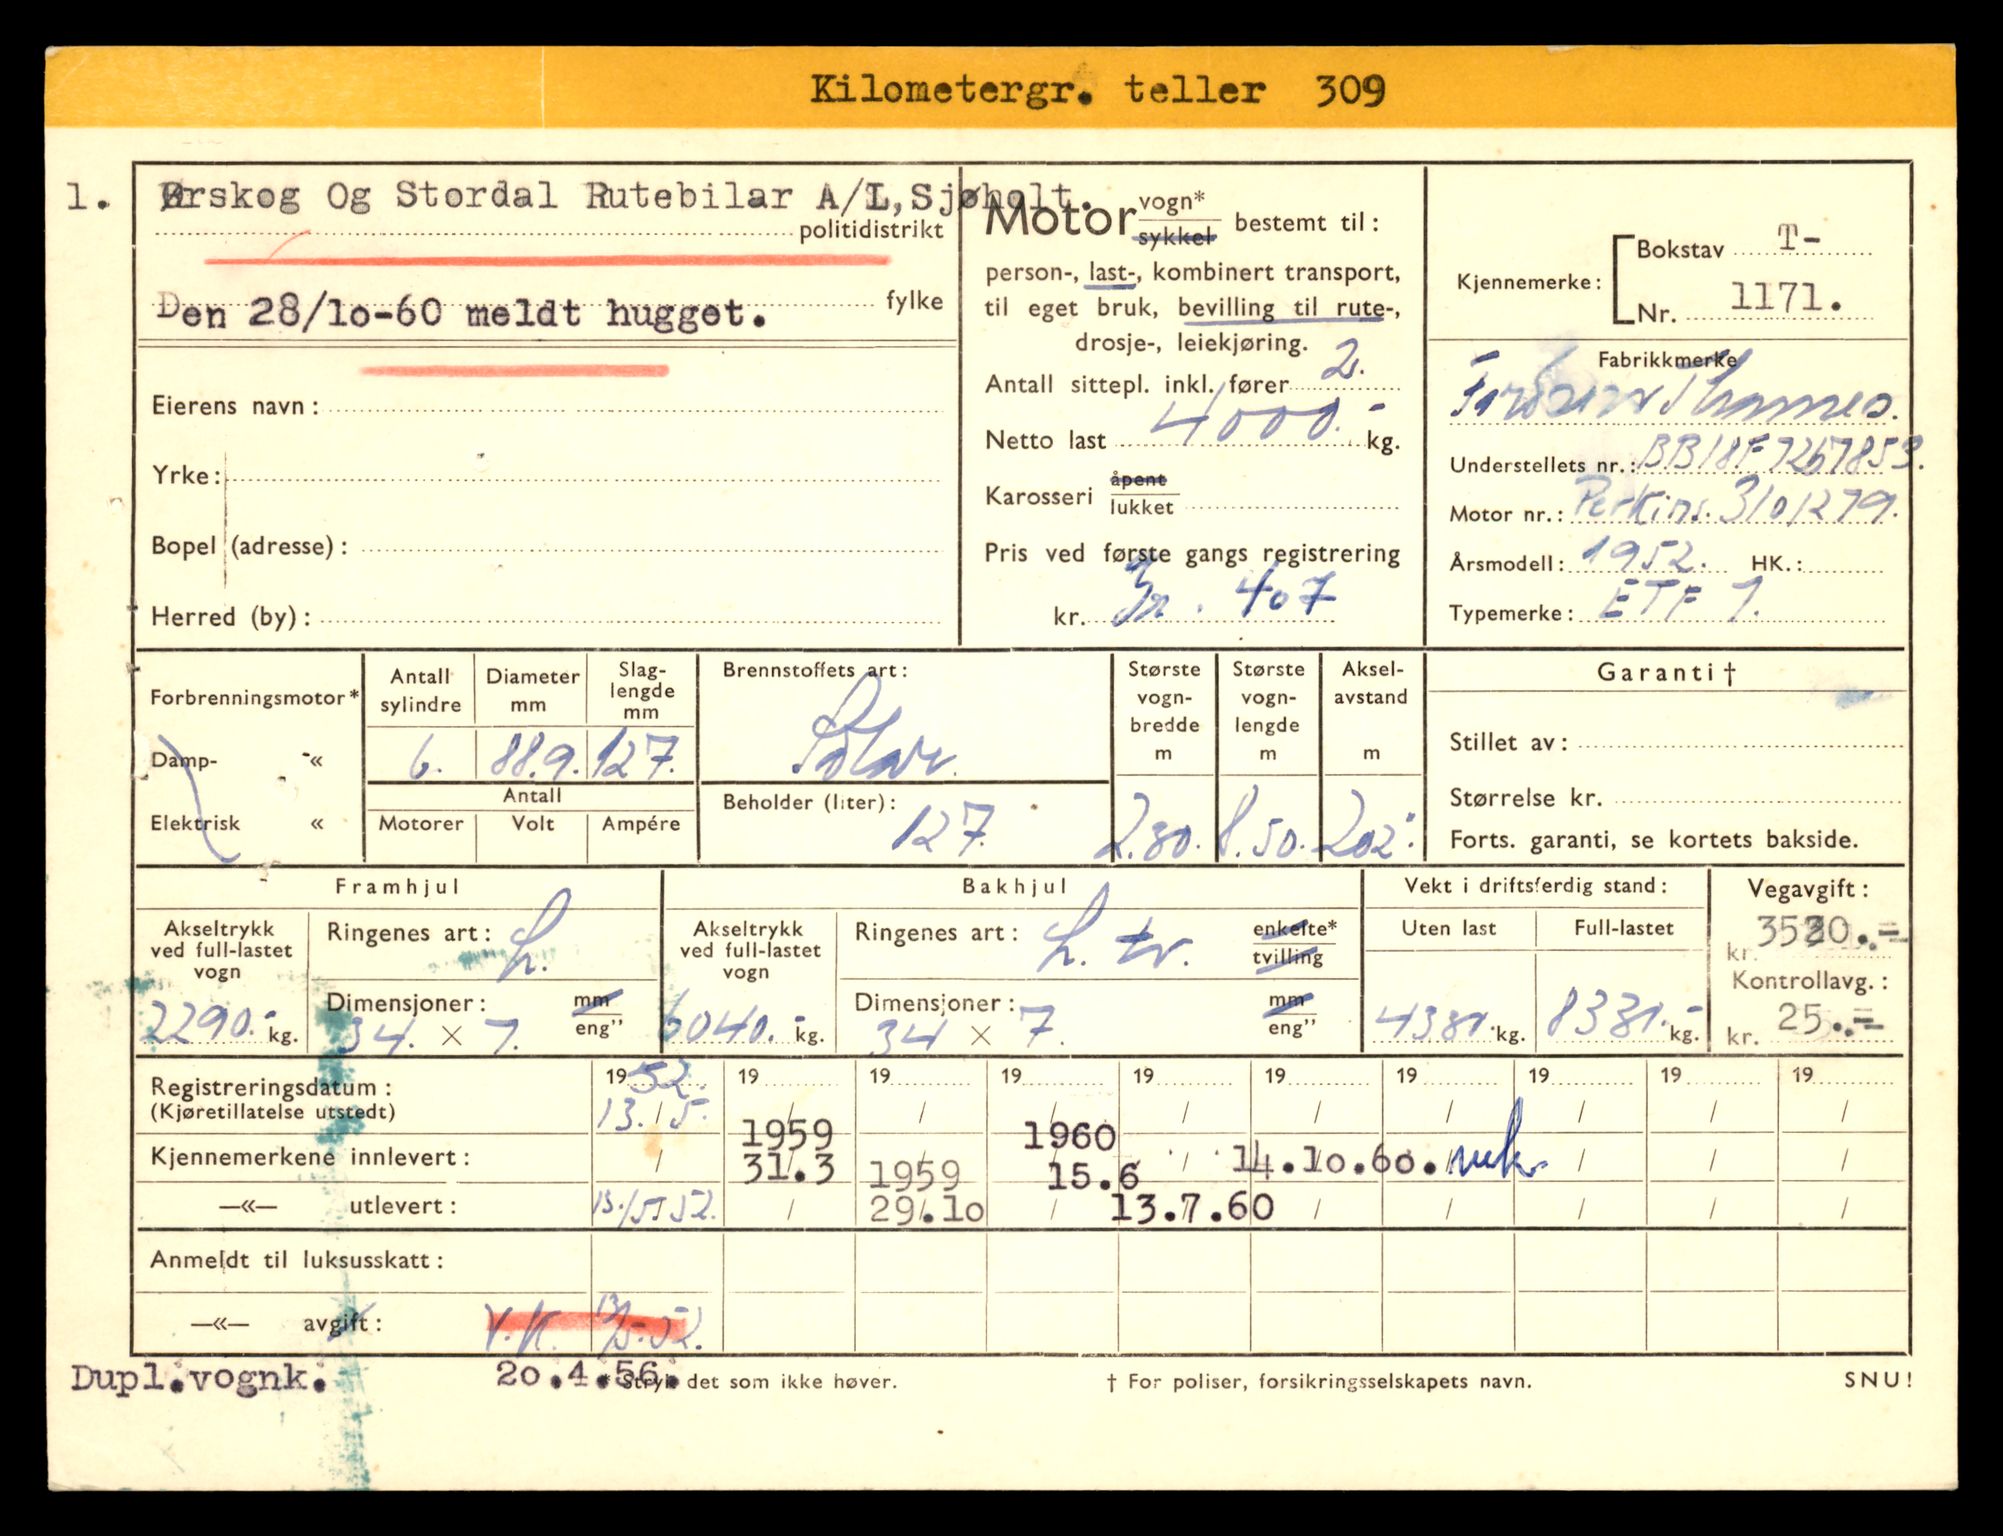 Kilometergr. teller 309
1. Ørskog Og Stordal Rutebilar A/L, Sjøholt.
politidistrikt
Den 28/10-60 meldt hugget.
fylke
Eierens navn:
Yrke:
Bopel (adresse):
Herred (by):
Motor vogn* sykkel bestemt til:
person-, last-, kombinert transport,
til eget bruk, bevilling til rute-,
drosje-, leiekjøring.
Antall sittepl. inkl. fører 2.
Netto last 4000.- kg.
Karosseri åpent lukket
Pris ved første gangs registrering
kr. 407
Kjennemerke: Bokstav T-
Nr. 1171.
Fabrikkmerke
Thames.
Understellets nr.: BB18F7267853.
Motor nr.: Perkins. 3101279.
Årsmodell: 1952. HK.:
Typemerke: ETF 7.
Forbrenningsmotor*
Damp- -«
Elektrisk «
Antall sylindre
Diameter mm
Slag-lengde mm
6. 88.9. 127.
Antall
Motorer Volt Ampére
Brennstoffets art:
Solar.
Beholder (liter):
127.
Største vogn-bredde m
Største vogn-lengde m
Aksel-avstand m
2.30. 8.50. 202":
Garanti †
Stillet av:
Størrelse kr.
Forts. garanti, se kortets bakside.
Framhjul
Akseltrykk ved full-lastet vogn
2290.- kg.
Ringenes art: L.
Dimensjoner: mm eng”
34. × 7.
Bakhjul
Akseltrykk ved full-lastet vogn
6040.- kg.
Ringenes art: L. tv. enkelte* tvilling
Dimensjoner: mm eng”
34 × 7.
Vekt i driftsferdig stand:
Uten last Full-lastet
4331.- kg. 8331.- kg.
Vegavgift:
kr.
Kontrollavg.:
kr. 25.-
Registreringsdatum:
(Kjøretillatelse utstedt)
1952. 19 19 19 19 19 19 19 19 19
13./5. / / / / / / / / /
Kjennemerkene innlevert:
/ 1959 31.3 1960 15.6 14.10.60. / /
—«— utlevert:
13./5. 52. / 1959 29.10 / 13.7.60 / / / / /
Anmeldt til luksusskatt:
—«— avgift: V.K. 13/5.-52.
Dupl.vognk. 20.4.56.
* Stryk det som ikke høver.
† For poliser, forsikringsselskapets navn.
SNU!